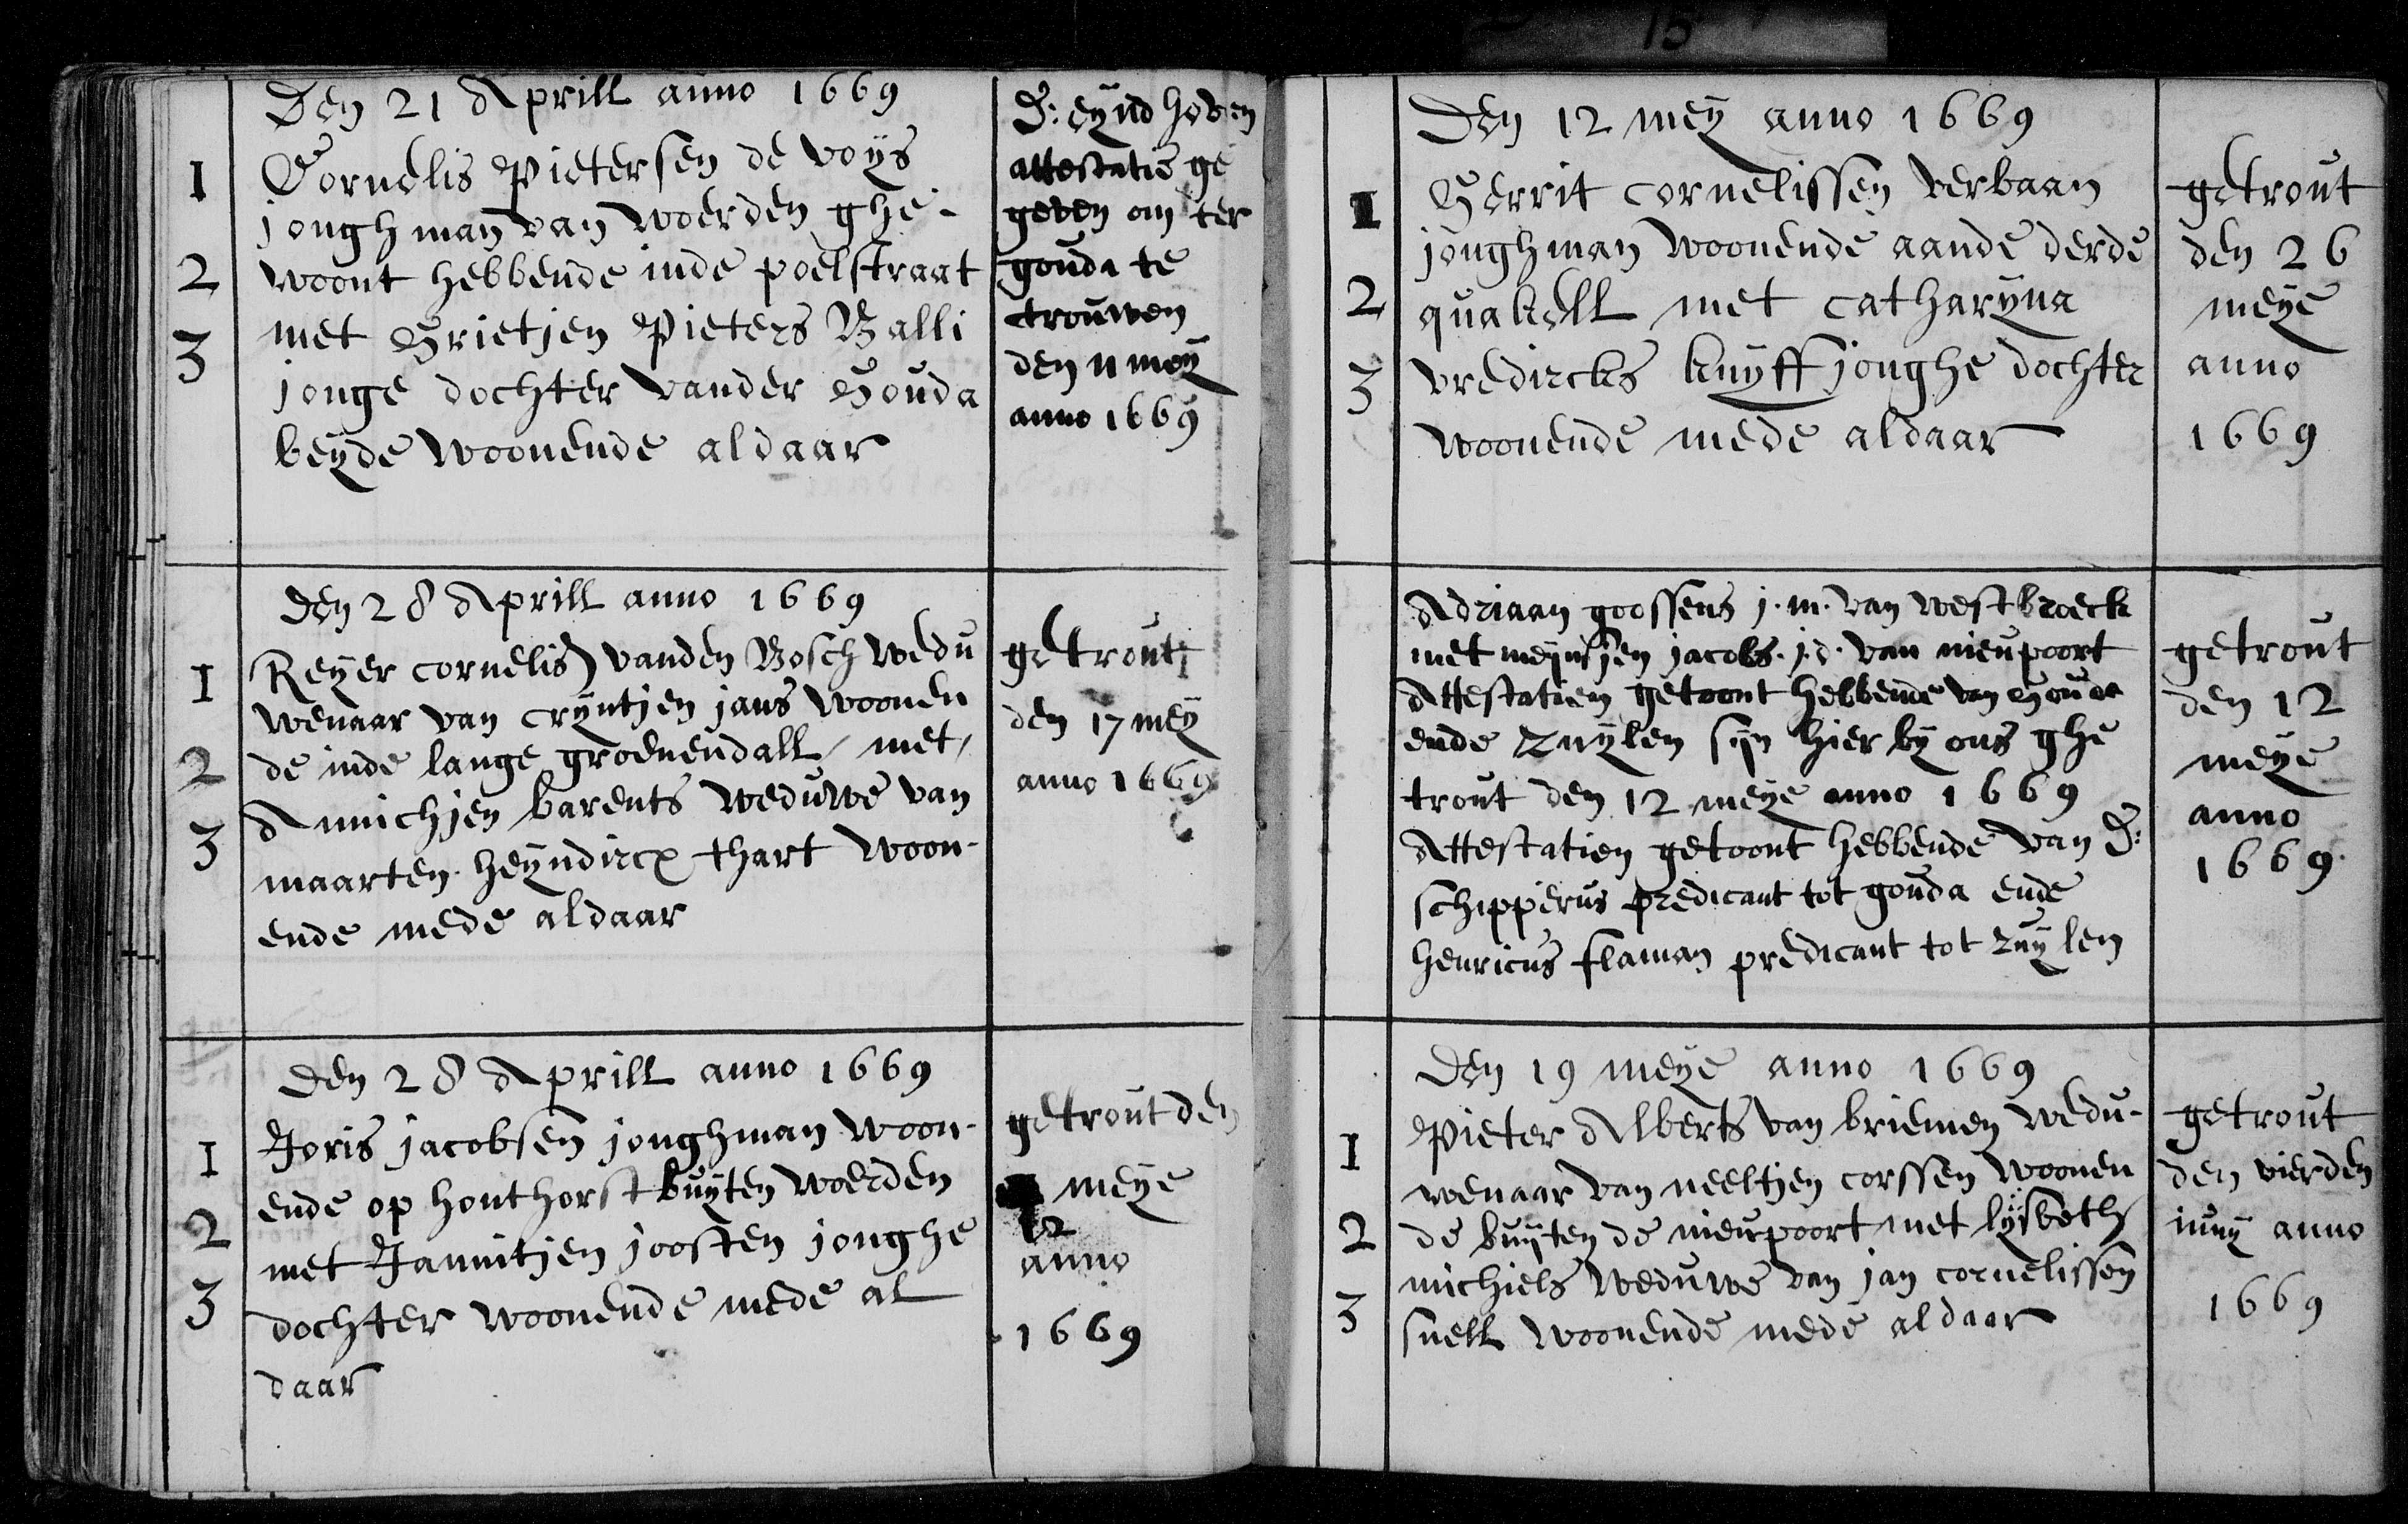 15
Den 21 Aprill anno 1669
1
Cornelis Pietersen de voijs
jonghman van woerden ghe-
2
woont hebbende inde poelstraat
3
met Grietjen Pieters Balli
jonge dochter vander Gouda
beijde woonende aldaar
D: eijndhoven
attestatie ge
geven om ter
gouda te
trouwen
den 11 meij
anno 1669
Den 28 Aprill anno 1669
1
Reijer cornelis vanden Bosch wedu
wenaar van crijntjen jans woonen
2
de inde lange groenendall met
Annichjen barents weduwe van
3
maarten heijndircx thart woon-
ende mede aldaar
getrout
den 17 meij
anno 1669
Den 28 Aprill anno 1669
1
Joris jacobsen jonghman woon-
ende op honthorst buijten woerden
2
met Jannitjen joosten jonghe
3
dochter woonende mede al
daar
getrout den
meije
12
anno
1669
Den 12 meij anno 1669
1
Gerrit cornelissen verbaan
jonghman woonende aande derde
2
quakell met catharijna
3
vredircks kuijff jonghe dochter
woonende mede aldaar
getrout
den 26
meije
anno
1669
Adriaan goossens j.m. van westbroeck
met meijnsjen jacobs. j.d. van nieupoort
Attestatien getoont hebbende van Gouda
ende Zuijlen sijn hier bij ons ghe
trout den 12 meije anno 1669
Attestatien getoont hebbende van D:
schipperus predicant tot gouda ende
henricus flaman predicant tot zuijlen
getrout
den 12
meije
anno
1669.
Den 19 meije anno 1669
1
Pieter Alberts van briemen wedu-
wenaar van neeltjen corssen woonen
2
de buijten de nieupoort met lijsbeth
michiels weduwe van jan cornelissen
3
snell woonende mede aldaar
getrout
den vierden
iunij anno
1669